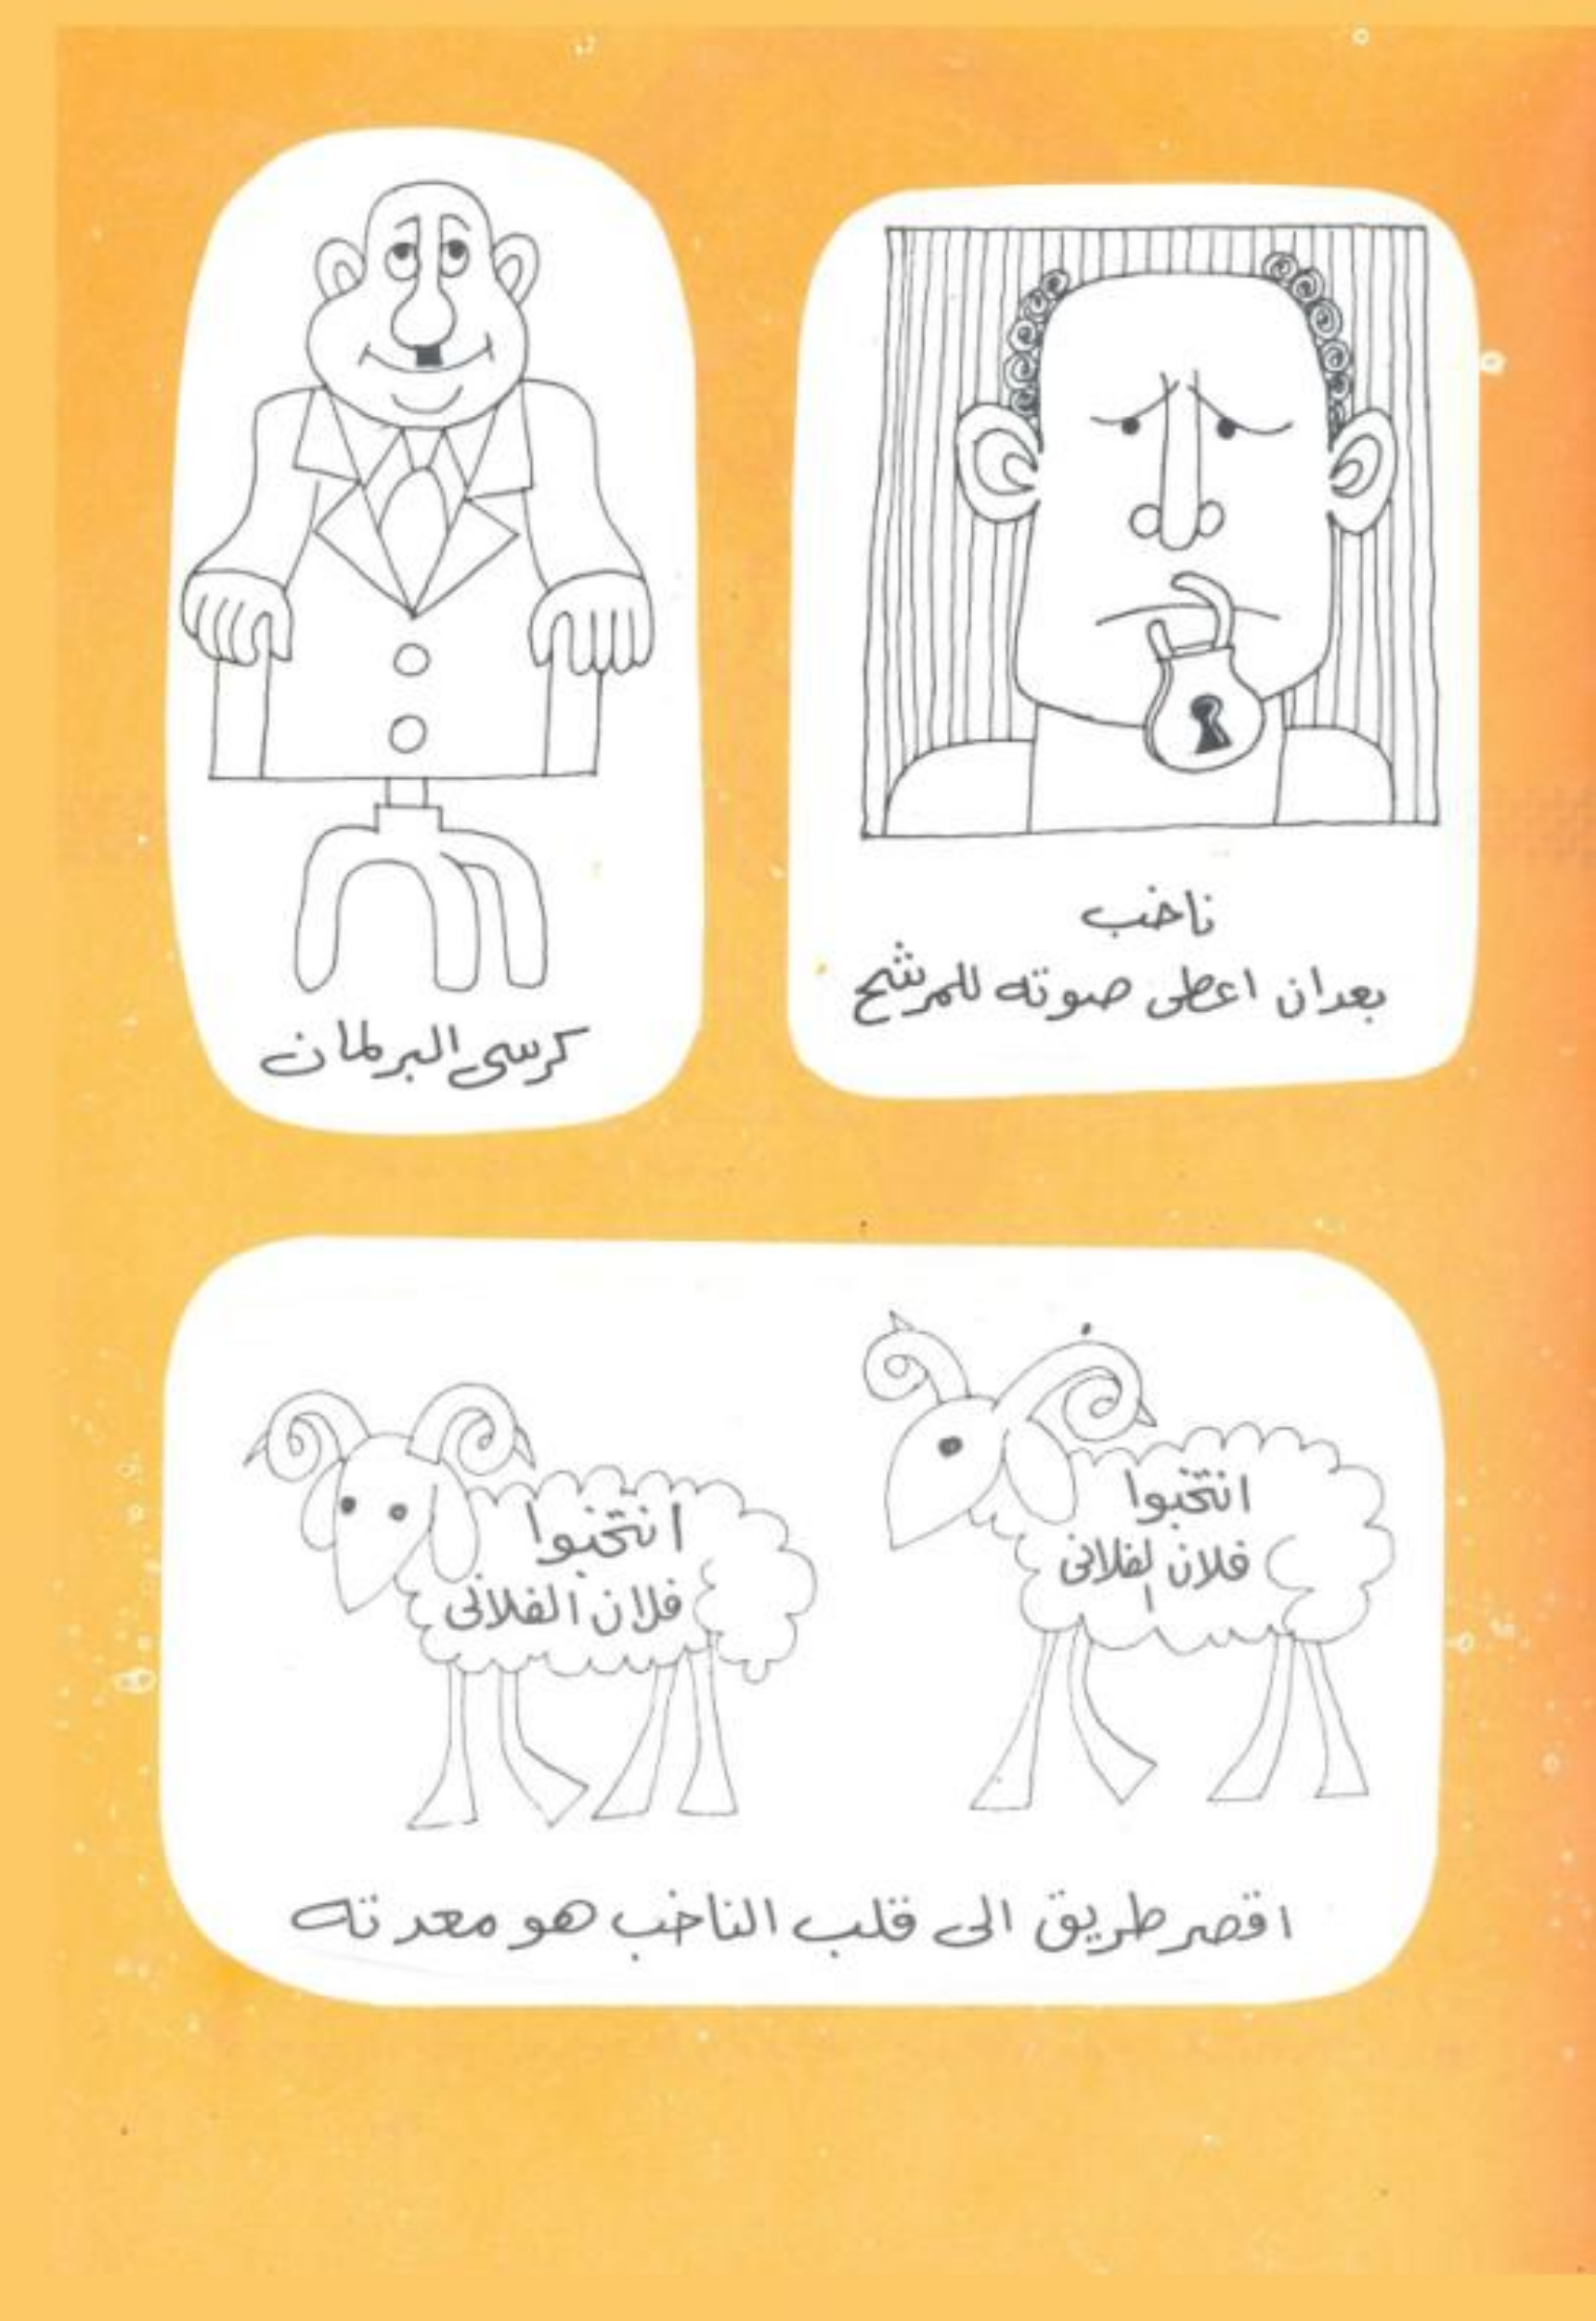 ناخب
بعد ان اعطى صوته للمرشح
كرسى البرلمان
انتخبوا
فلان الفلانى
انتخبوا
فلان الفلانى
اقصر طريق الى قلب الناخب هو معدته